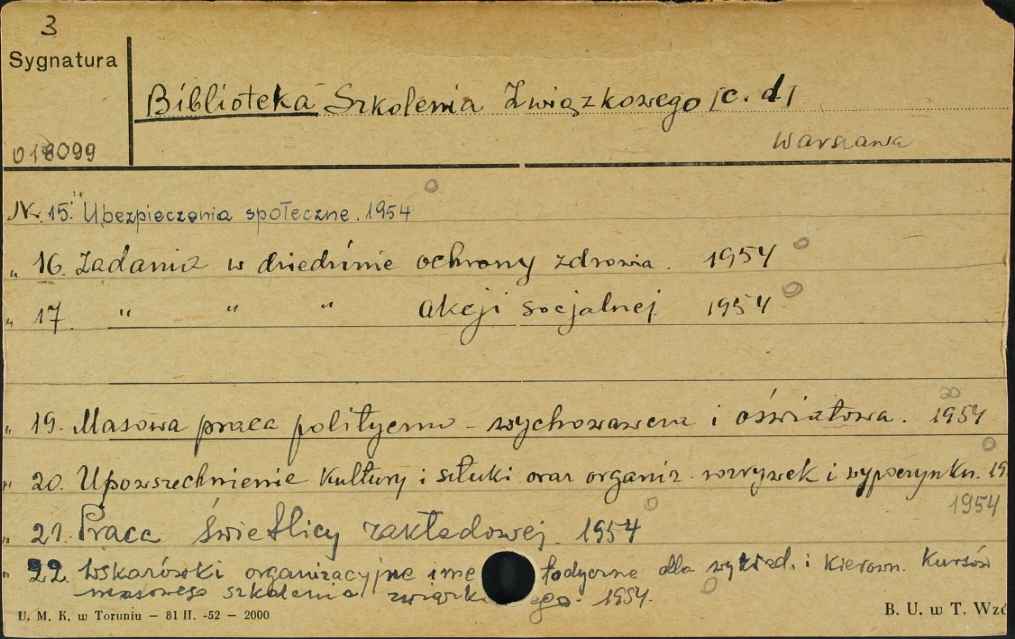 3
Sygnatura
Biblioteka Szkolenia Związkowego [c. d]
Warszawa
018099
Nr. 15. Ubezpieczenia społeczne. 1954
" 16. Zadania w dziedzinie ochrony zdrowia. 1954
" 17. " " " akcji socjalnej 1954
" 19. Masowa praca polityczno - wychowawcza i oświatowa. 1954
" 20. Upowszechnienie kultury i sztuki oraz organiz. rozrywek i wypoczynku. 19
1954
" 21. Praca świetlicy zakładowej. 1954
" 22. Wskazówki organizacyjne i me todyczne dla wykład. i kierown. kursów
masowego szkolenia związk ego. 1954.
U. M. K. w Toruniu — 81 II. -52 — 2000
B. U. w T. Wzó